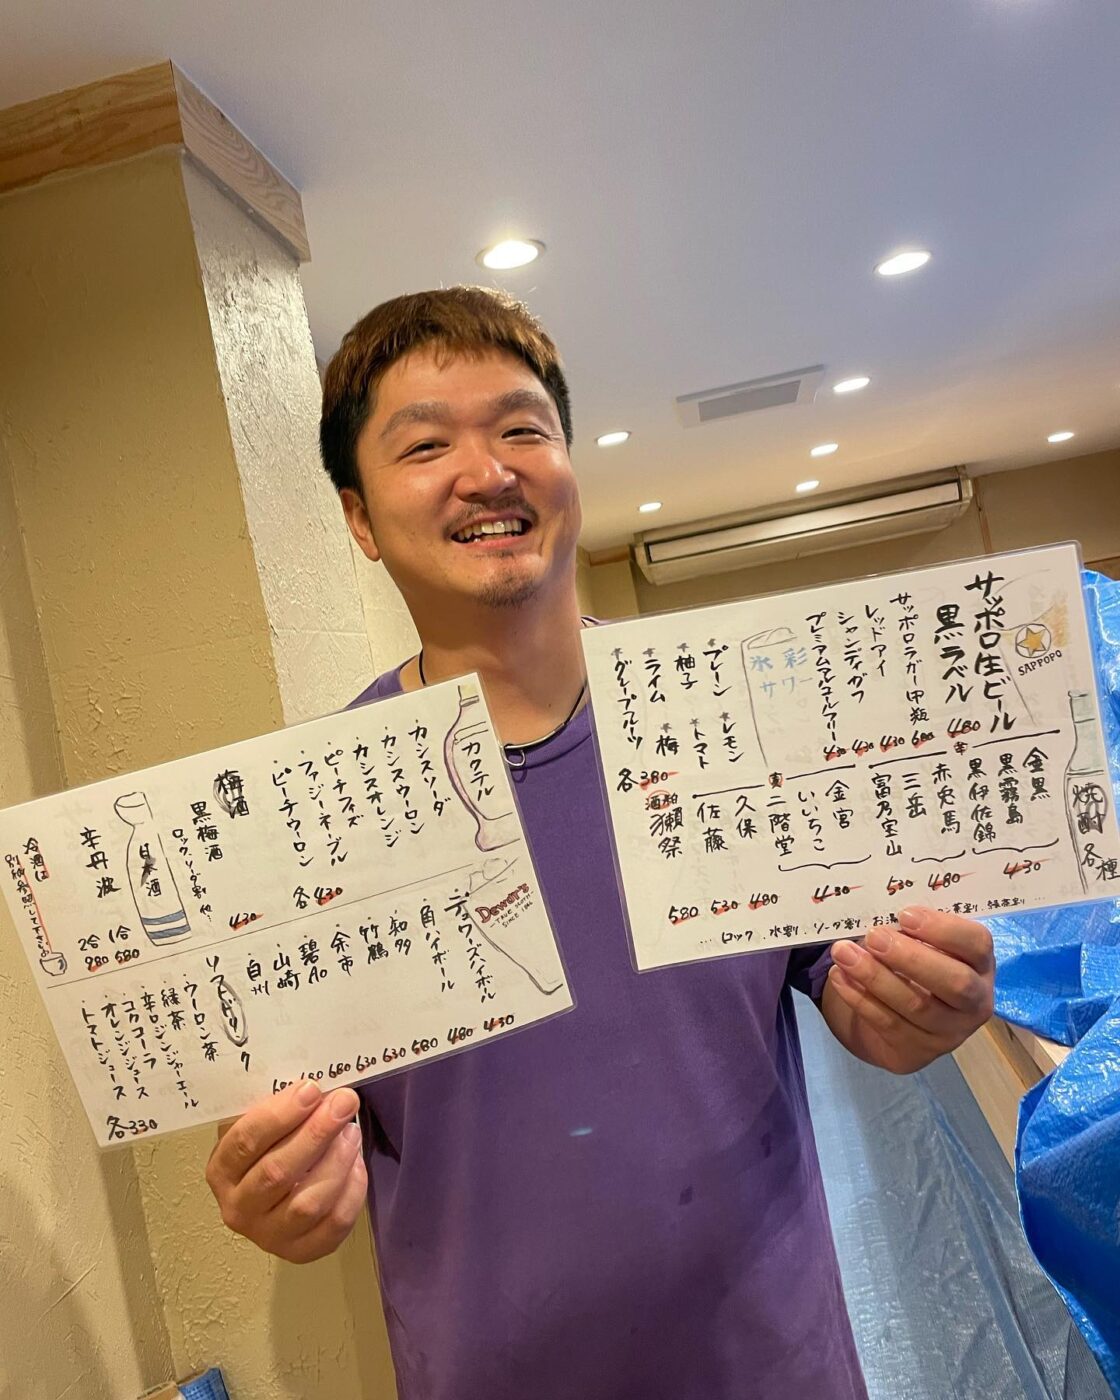 サッポロ生ビール
黒ラベル 480
サッポロラガー中瓶 680
レッドアイ 430
シャンディガフ 430
プレミアムアルコールフリー 430
SAPPORO
氷彩
サワー
プレーン
レモン
柚子
トマト
ライム
梅
グレープフルーツ
各380
焼酎各種
金黒
黒霧島
430
黒伊佐錦
赤兎馬 480
三岳
富乃宝山 530
金宮
いいちこ
430
二階堂 480
久保
佐藤 530
獺祭 580
… ロック . 水割り . ソーダ割り . お湯
茶割り . 緑茶割り …
カクテル
・カシスソーダ
・カシスウーロン
・カシスオレンジ
・ピーチフィズ
・ファジーネーブル
・ピーチウーロン
各430
梅酒
黒梅酒
ロック、ソーダ割 他…
430
日本酒
辛丹波
1合 580
2合 980
冷酒は
Dewar's
TRUE SCOTCH
SINCE 1846
デュワーズハイボール 430
・角ハイボール 480
・知多 580
・竹鶴 630
・余市 630
・碧Ao 680
・山崎
・白州
ソフトドリンク
・ウーロン茶
・緑茶
・辛口ジンジャーエール
・コカコーラ
・オレンジジュース
・トマトジュース
各330